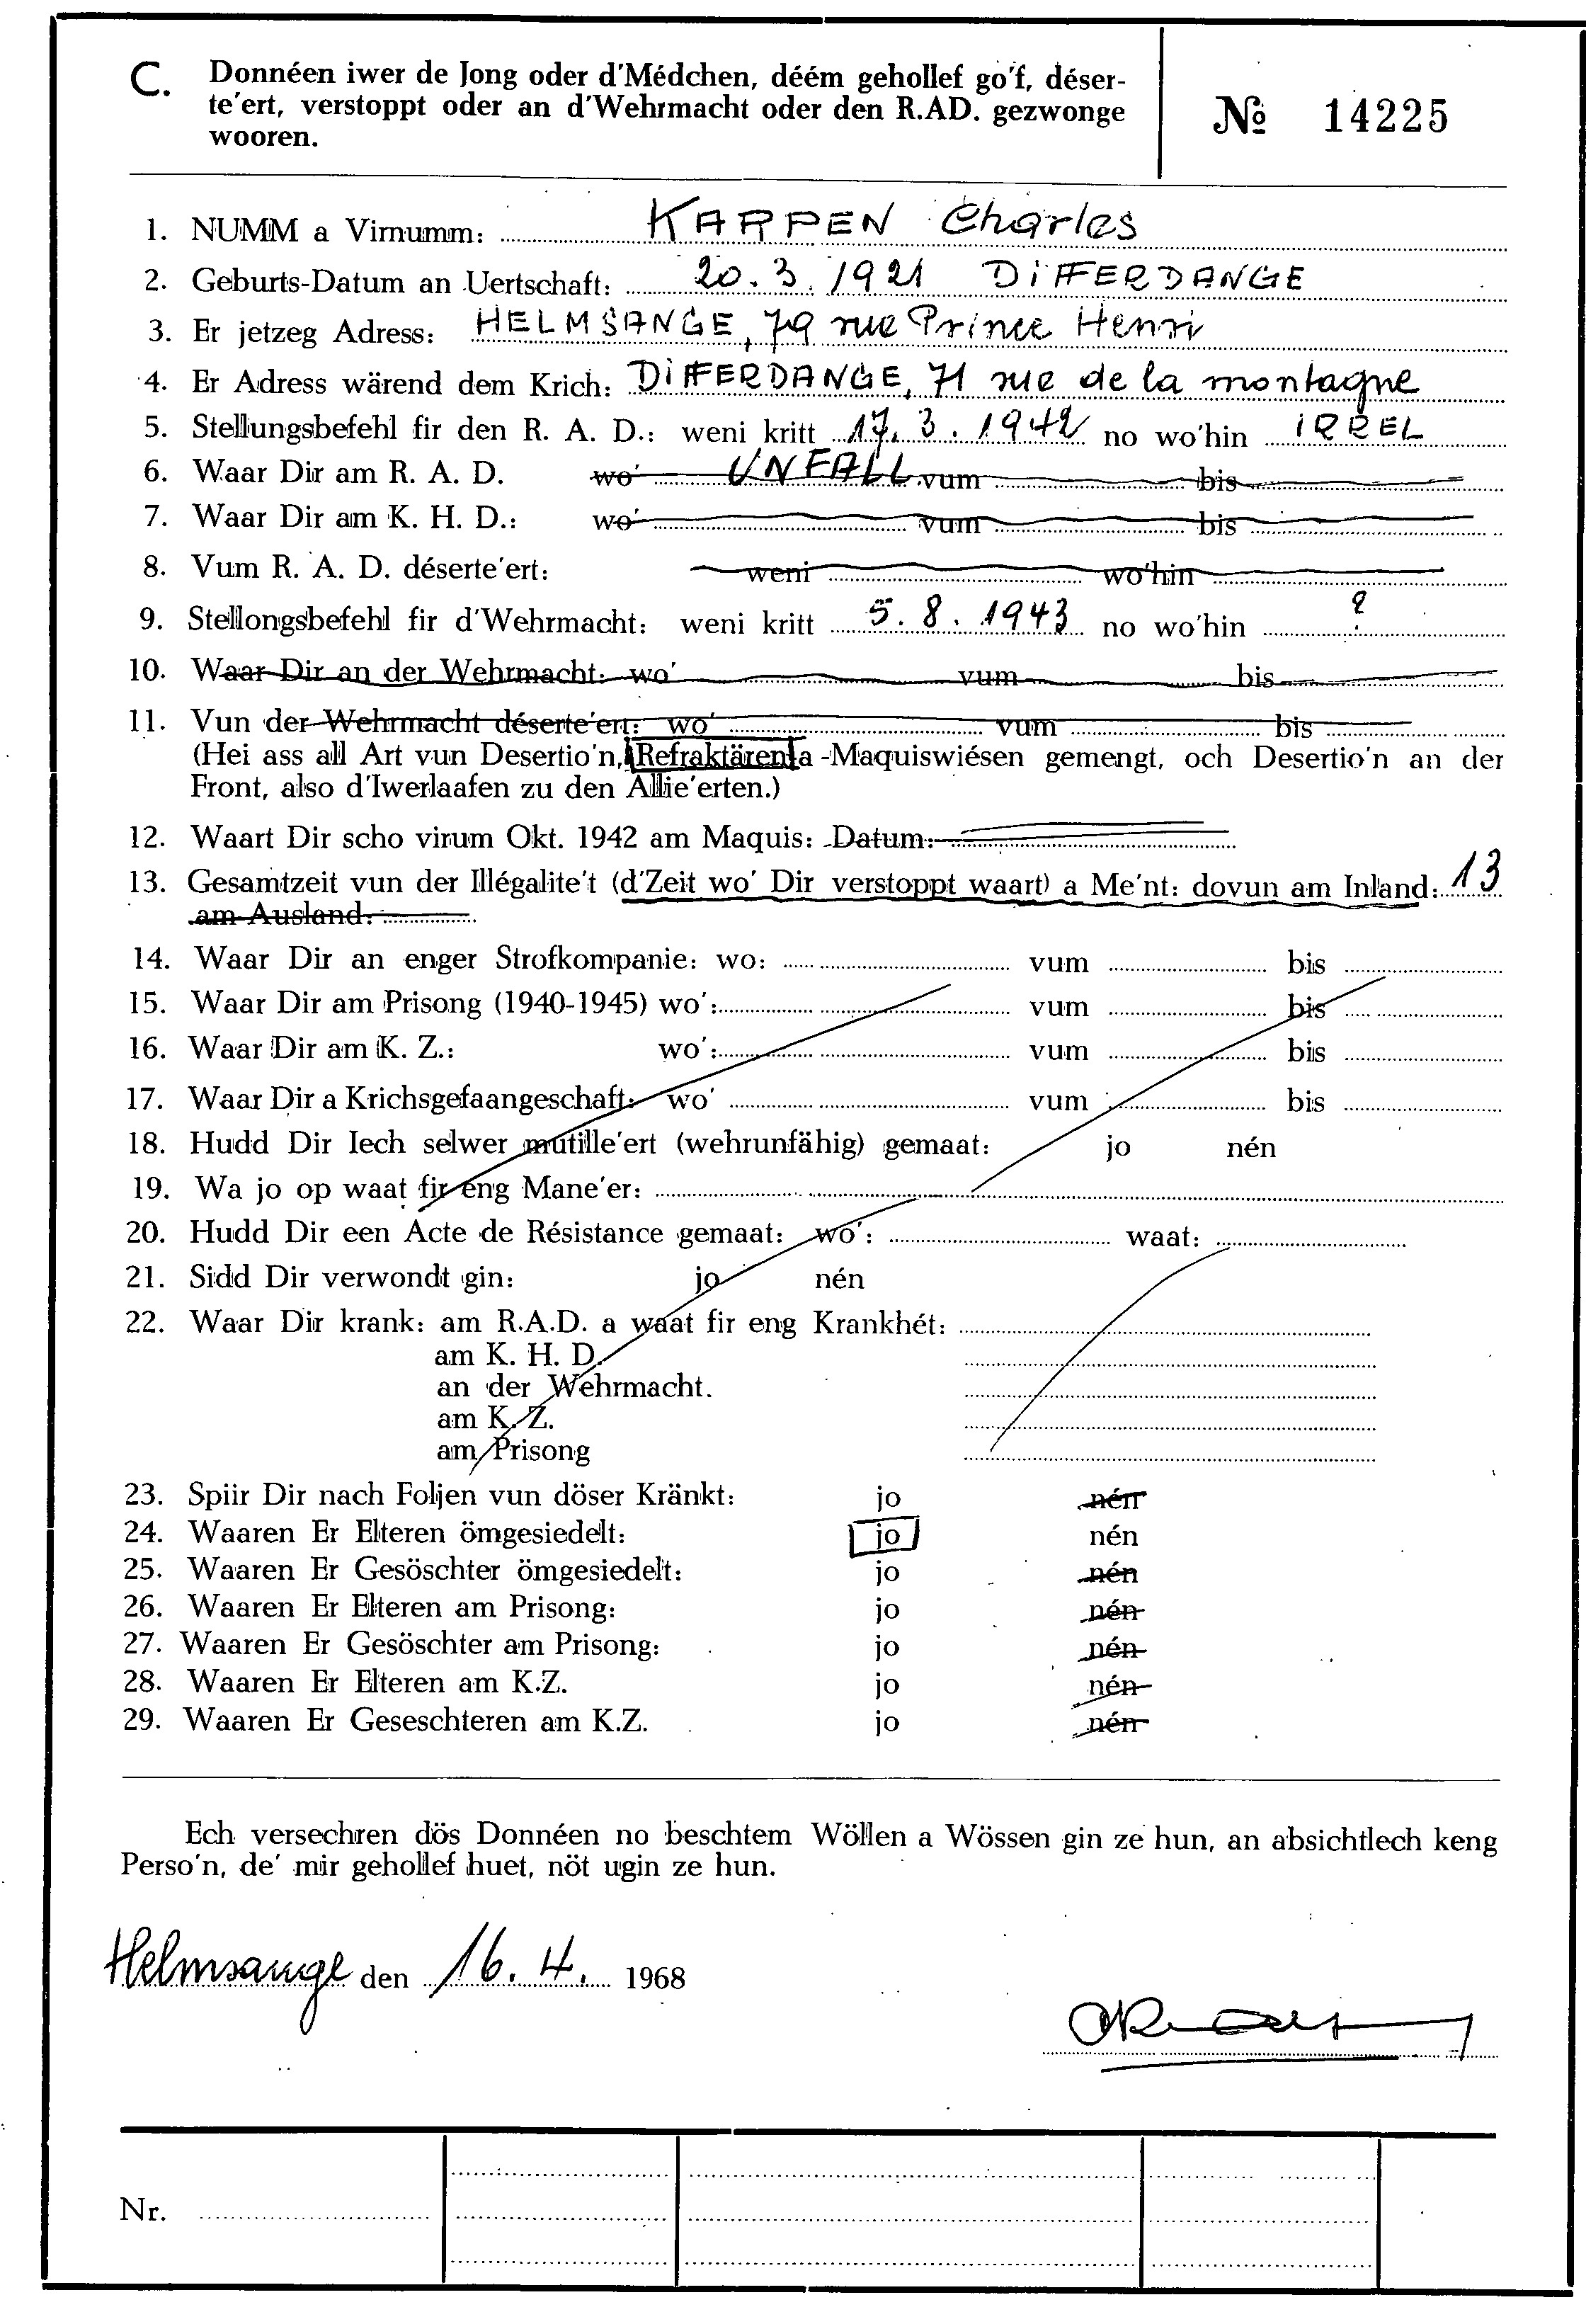 C. Donnéen iwer de Jong oder d'Médchen, déém gehollef go'f, déser-
te'ert, verstoppt oder an d'Wehrmacht oder den R.AD. gezwonge
wooren.
№ 14225
1. NUMM a Virnumm: KAPPEN Charles
2. Geburts-Datum an Uertschaft: 20.3.1921 DIFFERDANGE
3. Er jetzeg Adress: HELMSANGE, 79 rue Prince Henri
4. Er Adress wärend dem Krich: DIFFERDANGE, 71 rue de la montagne
5. Stellungsbefehl fir den R. A. D.: weni kritt 17.3.1942 no wo'hin IRREL
6. Waar Dir am R. A. D. wo' UNFALL vum bis
7. Waar Dir am K. H. D.: wo' vum bis
8. Vum R. A. D. déserte'ert: weni wo'hin
9. Stellongsbefehl fir d'Wehrmacht: weni kritt 5.8.1943 no wo'hin ?
10. Waar Dir an der Wehrmacht: wo' vum bis
11. Vun der Wehrmacht déserte'ert: wo' vum bis
(Hei ass all Art vun Desertio'n, Refraktären a -Maquiswiésen gemengt, och Desertio'n an der
Front, also d'Iwerlaafen zu den Allie'erten.)
12. Waart Dir scho virum Okt. 1942 am Maquis: Datum:
13. Gesamtzeit vun der Illégalite't (d'Zeit wo' Dir verstoppt waart) a Me'nt: dovun am Inland: 13
am Ausland:
14. Waar Dir an enger Strofkompanie: wo: vum bis
15. Waar Dir am Prisong (1940-1945) wo': vum bis
16. Waar Dir am K. Z.: wo': vum bis
17. Waar Dir a Krichsgefaangeschaft: wo' vum bis
18. Hudd Dir Iech selwer mutille'ert (wehrunfähig) gemaat: jo nén
19. Wa jo op waat fir eng Mane'er:
20. Hudd Dir een Acte de Résistance gemaat: wo': waat:
21. Sidd Dir verwondt gin: jo nén
22. Waar Dir krank: am R.A.D. a waat fir eng Krankhét:
am K. H. D.
an der Wehrmacht.
am K. Z.
am Prisong
23. Spiir Dir nach Foljen vun döser Kränkt: jo nén
24. Waaren Er Elteren ömgesiedelt: jo nén
25. Waaren Er Gesöschter ömgesiedelt: jo nén
26. Waaren Er Elteren am Prisong: jo nén
27. Waaren Er Gesöschter am Prisong: jo nén
28. Waaren Er Elteren am K.Z. jo nén
29. Waaren Er Geseschteren am K.Z. jo nén
Ech versechren dös Donnéen no beschtem Wöllen a Wössen gin ze hun, an absichtlech keng
Perso'n, de' mir gehollef huet, nöt ugin ze hun.
Helmsange den 16. 4. 1968
Nr.